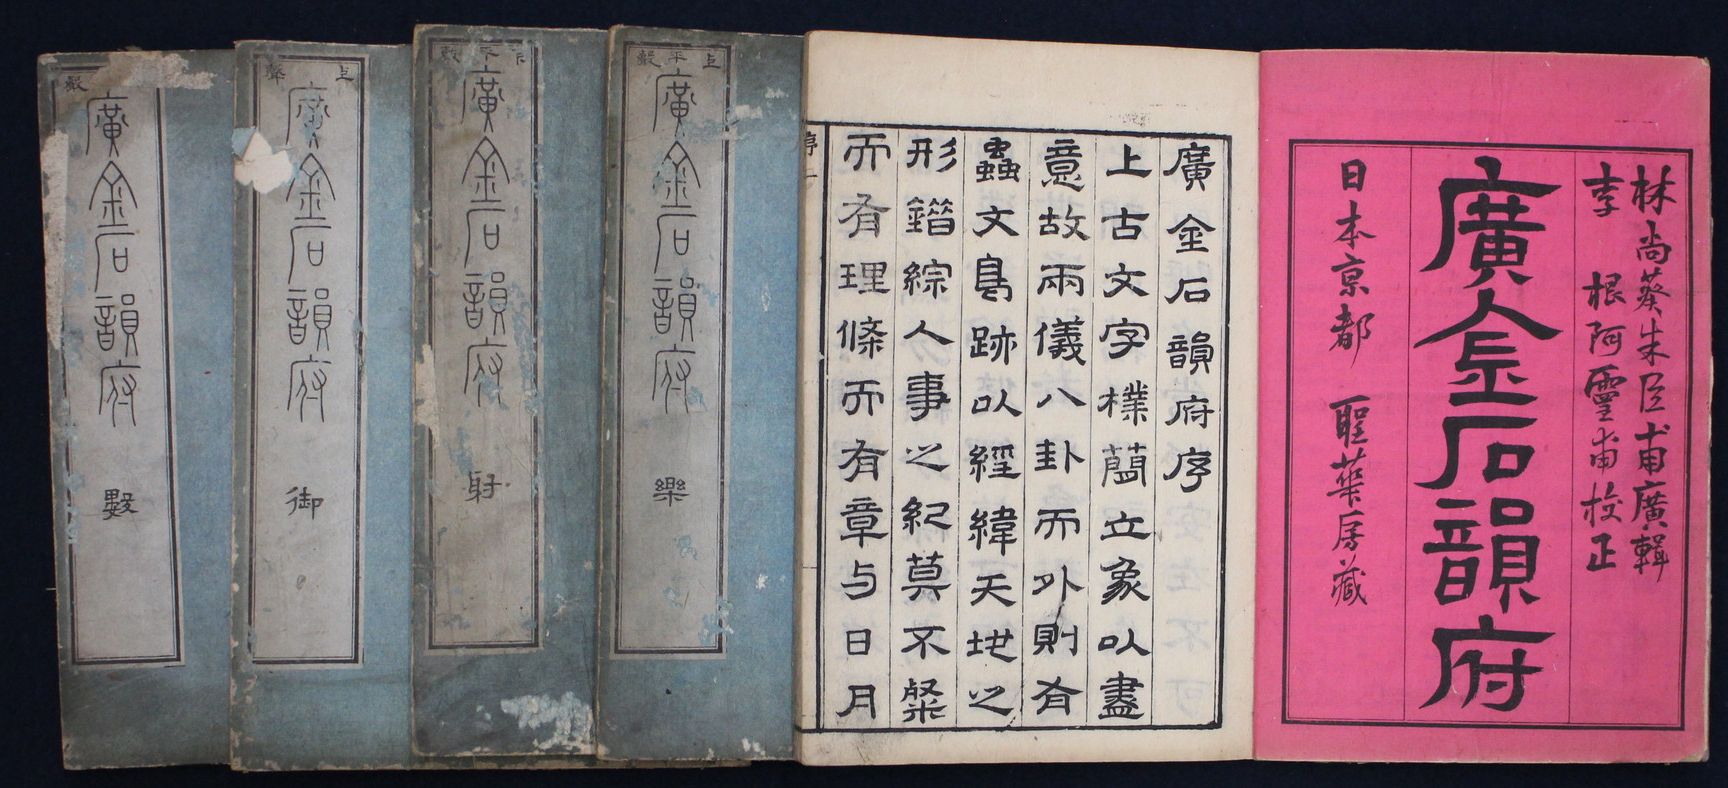 林尚葵朱臣甫廣輯
李 根阿靈甫校正
廣金石韻府
日本京都 聖華房藏
廣金石韻府序
上古文字樸蕳立象以盡
意故兩儀八卦而外則有
蟲文鳥跡以經緯天地之
形錯綜人事之紀莫不粲
而有理條而有章与日月
序 一
上平聲
廣金石韻府
樂
下平聲
廣金石韻府
射
上聲
廣金石韻府
御
聲
廣金石韻府
數